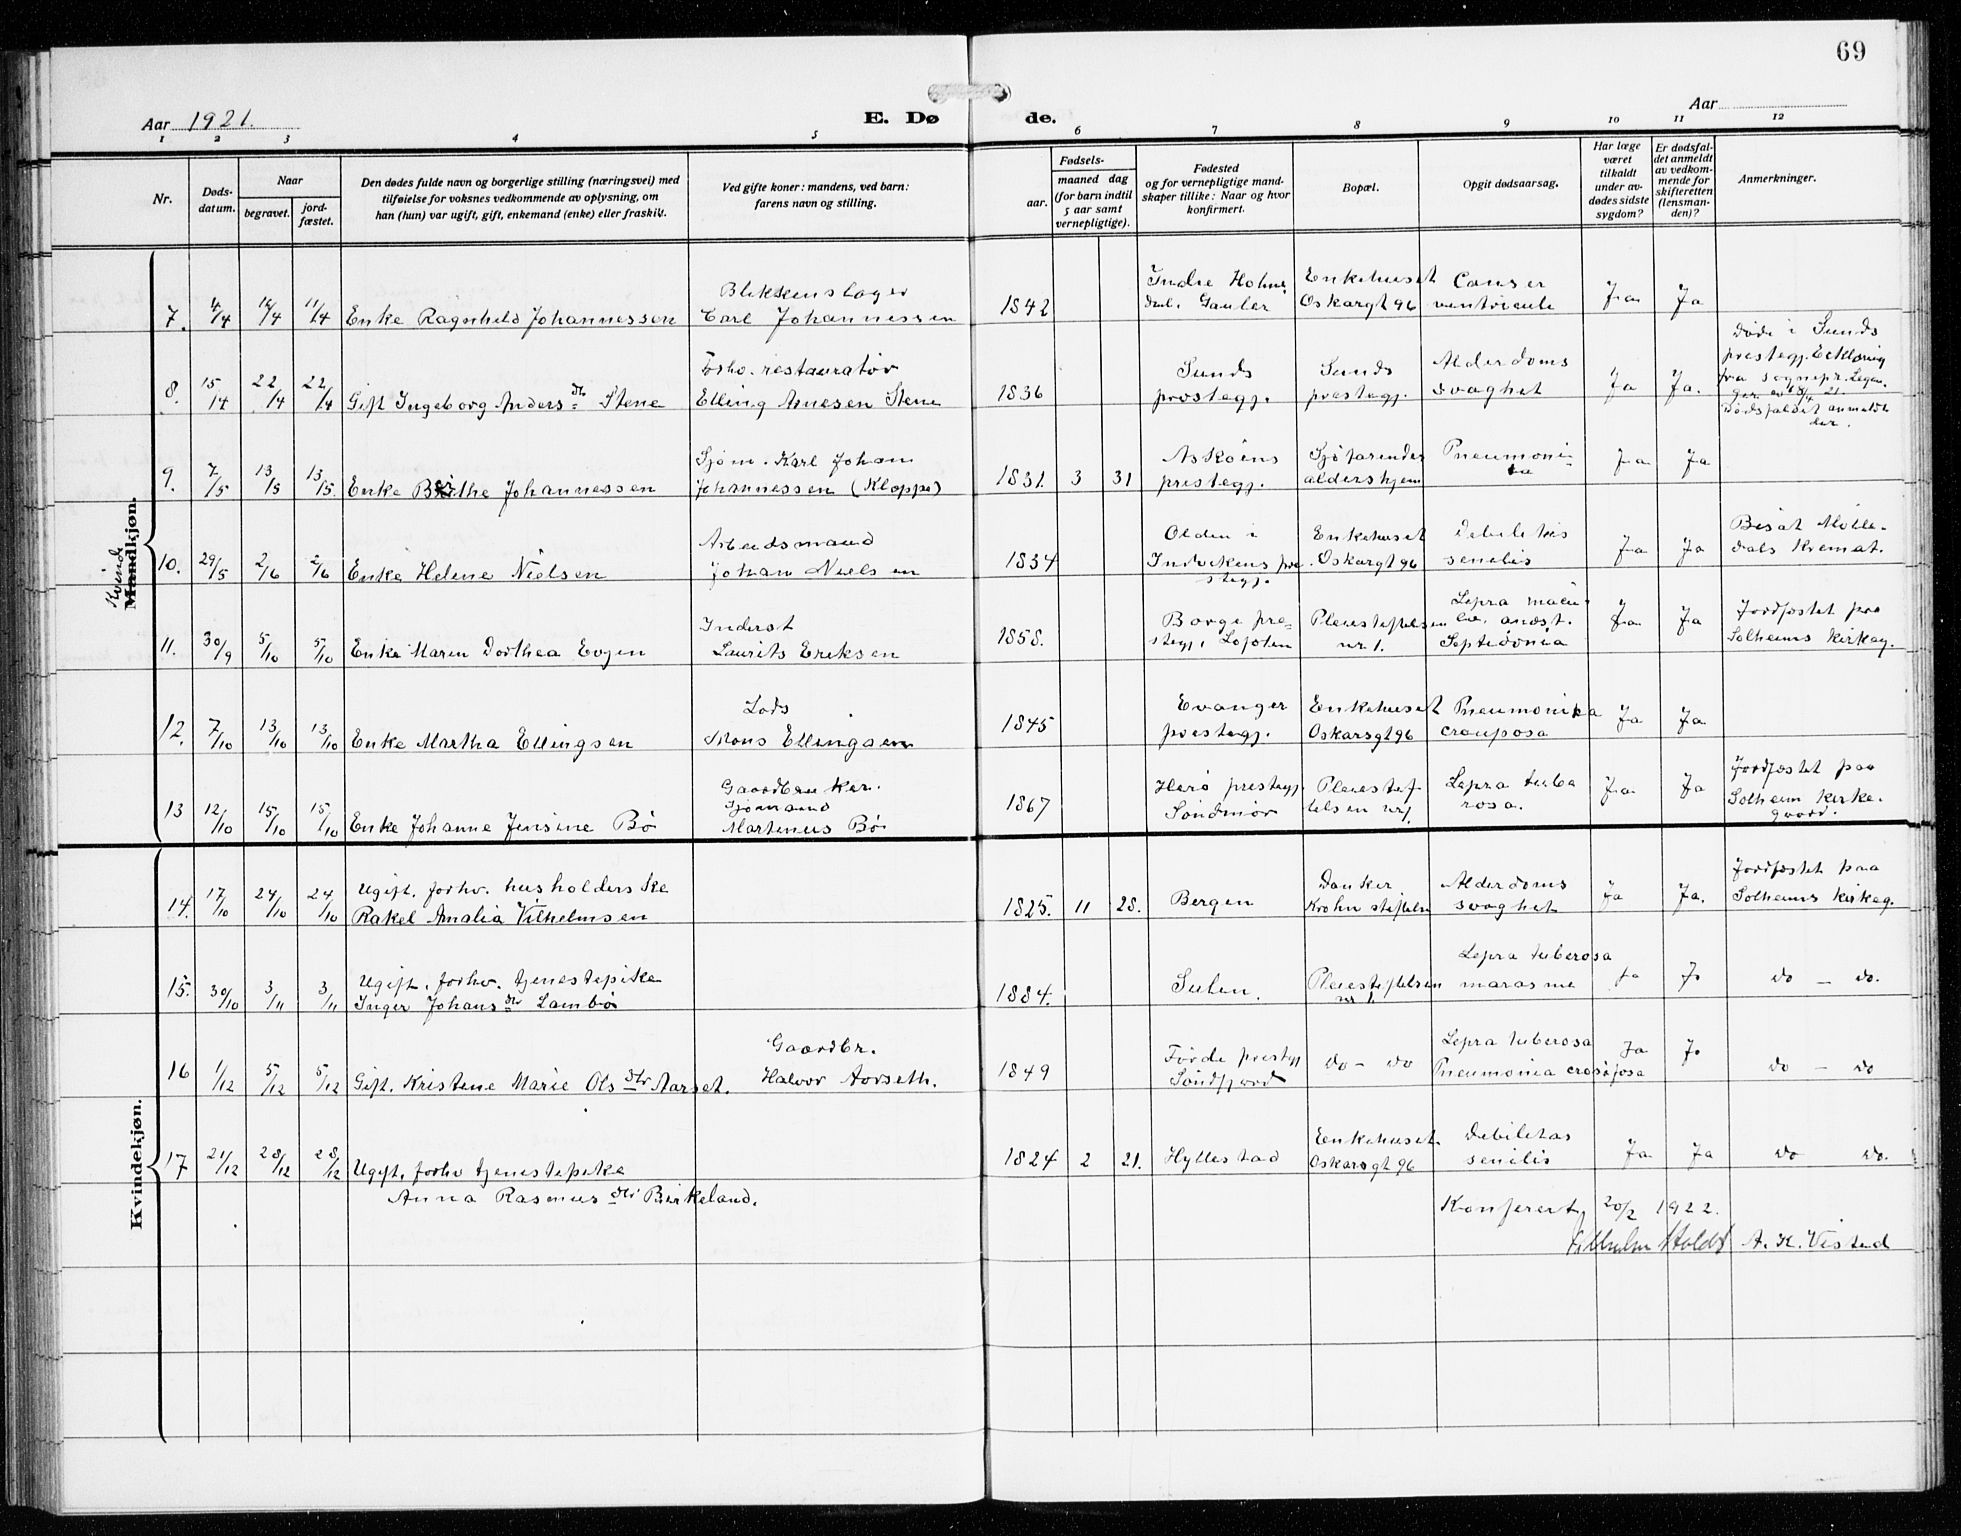 69
Aar 1921.
E. Dø
de.
Aar
1 2 3 4 5 6 7 8 9 10 11 12
Nr.
Døds-
datum.
Naar
begravet.
jord-
fæstet.
Den dødes fulde navn og borgerlige stilling (næringsvei) med
tilføielse for voksnes vedkommende av oplysning, om
han (hun) var ugift, gift, enkemand (enke) eller fraskilt.
Ved gifte koner: mandens, ved barn:
farens navn og stilling.
Fødsels-
aar.
maaned dag
(for barn indtil
5 aar samt
vernepligtige).
Fødested
og for vernepligtige mand-
skaper tillike: Naar og hvor
konfirmert.
Bopæl.
Opgit dødsaarsag.
Har læge
været
tilkaldt
under av-
dødes sidste
sygdom?
Er dødsfal-
det anmeldt
av vedkom-
mende for
skifteretten
(lensman-
den)?
Anmerkninger.
Kvinde
Mandkjøn.
7. 4/4 11/4 Enke Ragnhild Johannessen
Blikkenslager
Carl Johannessen
1842
Indre Holme
dal. Gauler
Enkehuset
Oskarsgt 96
Canser
ventricule
Ja Ja
8. 15/4 22/4 22/4 Gift Ingeborg Anders dtr Stene
Forhv. restauratør
Elling Anesen Stene
1836
Sunds
prestegj.
Sunds
prestegj.
Alderdoms
svaghet
Ja Ja.
Døde i Sunds
prestegj. Erklæring
fra sognepr.
Dødsfaldet anmeldt
der.
9. 7/5 13/5 13/5. Enke Berthe Johannessen
Sjøm. Karl Johan
Johannessen (Kloppe)
1831. 3 31
Askøens
prestegj.
Sjøfarendes
aldershjem
Pneumoni-
a
Ja Ja
10. 29/5 2/6 2/6 Enke Helene Nielsen
Arbeidsmand
Johan Nielsen
1834
Olden i
Indvikens pre
stegj.
Enkehuset
Oskarsgt 96
Debilitas
senilis
Ja Ja
Bisat Mölle-
dals Kremat.
11. 30/9 5/10 5/10 Enke Maren Dorthea Evjen
Inderst
Laurits Eriksen
1858.
Borge pre-
stegj. Lofoten
Pleiestiftelsen
nr 1.
Lepra macu-
lo. anæst.
Ja Ja
Jordfæstet paa
Solheims kirkeg.
12. 7/10 13/10 13/10 Enke Martha Ellingsen
Lods
Mons Ellingsen
1845
Evanger
prestegj.
Enkehuset
Oskarsgt 96
Pneumonia
crouposa
Ja Ja
13 12/10 15/10 15/10 Enke Johanne Jensine Bö
Gaardbruker.
Sjømand
Martinus Bö
1867
Herö prestegj.
Söndmör
Pleiestif-
telsen nr 1.
Lepra tube
rosa.
Ja Ja
Jordfæstet paa
Solheim kirke-
gaard.
Kvindekjøn.
14. 17/10 24/10 24/10 Ugift. forhv. husholderske
Rakel Amalia Vilhelmsen
1825. 11 28.
Bergen
Danker
Krohn stiftelse
Alderdoms
svaghet
Ja Ja.
Jordfæstet paa
Solheims kirkeg.
15. 30/10 3/11 3/11 Ugift. forhv. tjenestepike
Inger Johans dtr Lambö
1884.
Sulen.
Pleiestiftelsen
nr 1
Lepra tuberosa
marasme
Ja Ja
do - do.
16 1/12 5/12 5/12 Gift. Kristene Marie Ols dtr Aarset.
Gaardbr.
Halvor Aarseth.
1849
Förde prestegj
Söndfjord
do - do
Lepra tuberosa
Pneumonia crouposa
Ja Ja
do - do
17 21/12 28/12 28/12 Ugift. forhv tjenestepike
Anna Rasmus dtr Birkeland.
1824 2 21.
Hyllestad
Enkehuset
Oskarsgt 96
Debilitas
senilis
Ja Ja
do do.
Konferert, 20/2 1922.
A. K. Vistad